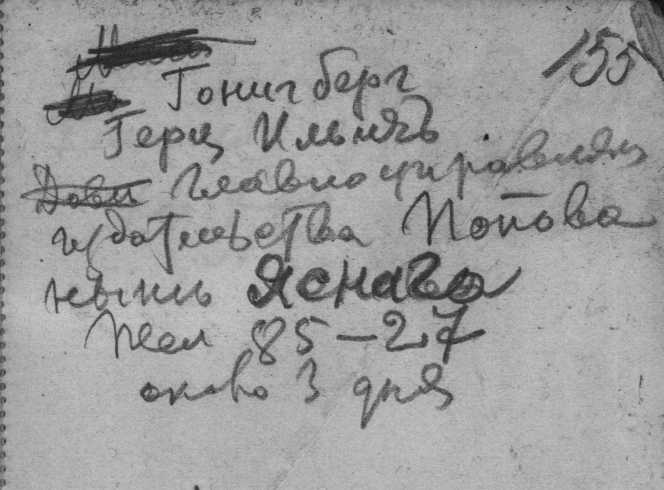 155
Гонигберг
Герц Ильичъ
главноуправляющ
издательства Попова
нынѣ Яснаго
Тел 85-27
около 3 дня